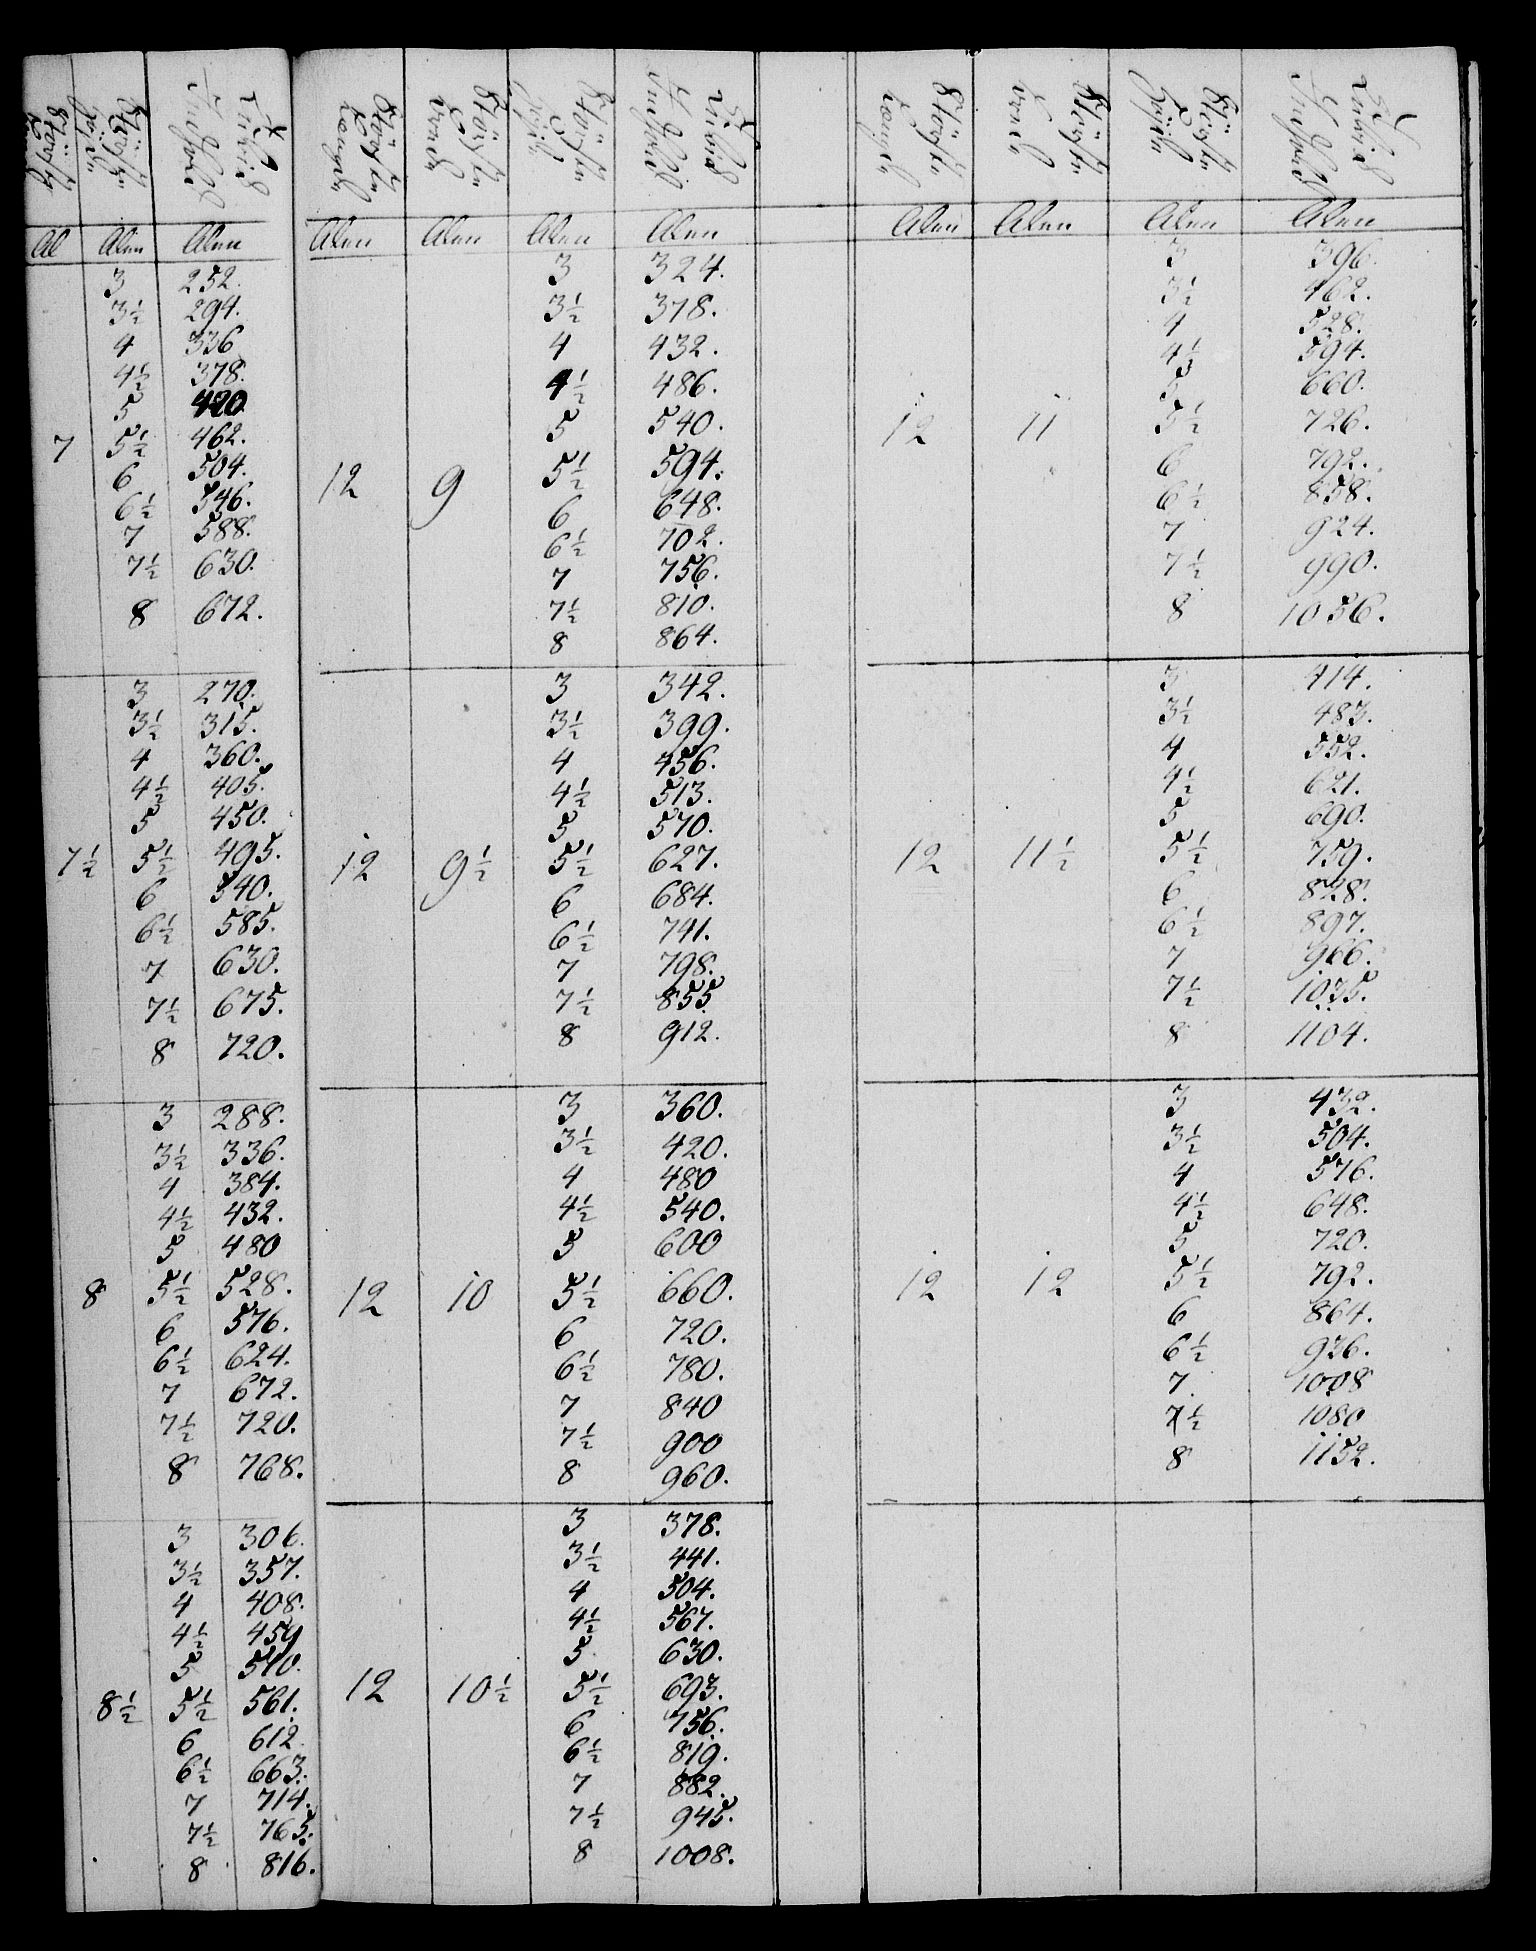 Störste Störste Cubic
Höjde Indhold
Al Alen Alen
3 252.
3½ 294.
4 336
4½ 378.
5 420
7 5½ 462.
6 504.
6½ 546.
7 588.
7½ 630.
8 672.
3 270.
3½ 315.
4 360.
4½ 405.
5 450.
7½ 5½ 495.
6 540.
6½ 585.
7 630.
7½ 675.
8 720.
3 288.
3½ 336.
4 384.
4½ 432.
5 480
8 5½ 528.
6 576.
6½ 624.
7 672.
7½ 720.
8 768.
3 306.
3½ 357.
4 408.
4½ 459
5 510.
8½ 5½ 561.
6 612.
6½ 663.
7 714.
7½ 765.
8 816.
Störste Störste Störste Cubic
Længde Brede Höjde Indhold
Alen Alen Alen Alen
3 324.
3½ 378.
4 432.
4½ 486.
5 540.
12 9 5½ 594.
6 648.
6½ 702.
7 756.
7½ 810.
8 864.
3 342.
3½ 399.
4 456.
4½ 513.
5 570.
12 9½ 5½ 627.
6 684.
6½ 741.
7 798.
7½ 855
8 912.
3 360.
3½ 420.
4 480
4½ 540.
5 600
12 10 5½ 660.
6 720.
6½ 780.
7 840
7½ 900
8 960.
3 378.
3½ 441.
4 504.
4½ 567.
5 630.
12 10½ 5½ 693.
6 756.
6½ 819.
7 882.
7½ 945.
8 1008.
Störste Störste Störste Cubic
Længde Brede Höjde Indhold
Alen Alen Alen Alen
3 396.
3½ 462.
4 528.
4½ 594.
5 660.
12 11 5½ 726.
6 792.
6½ 858.
7 924.
7½ 990.
8 1056.
3 414.
3½ 483.
4 552.
4½ 621.
5 690.
12 11½ 5½ 759.
6 828.
6½ 897.
7 966.
7½ 1035.
8 1104.
3 432.
3½ 504.
4 576.
4½ 648.
5 720.
12 12 5½ 792.
6 864.
6½ 936.
7 1008
7½ 1080
8 1152.